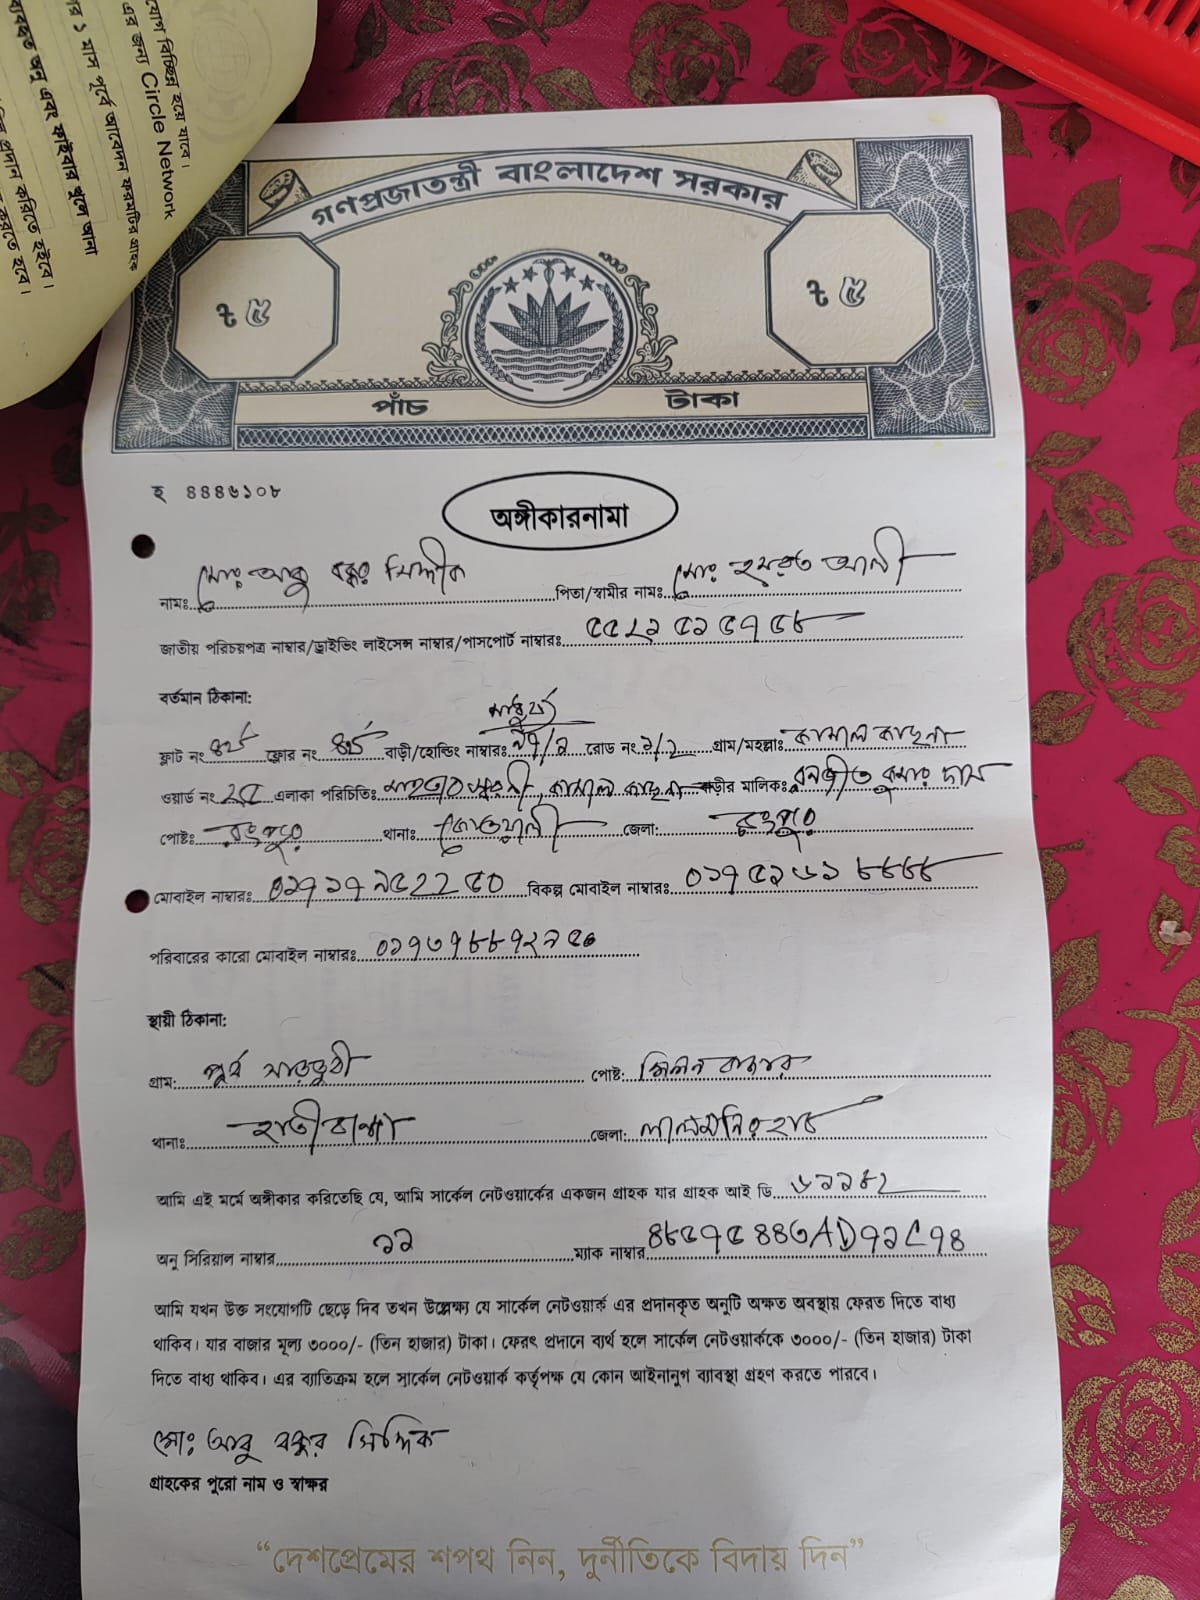 যোগ বিচ্ছিন্ন হয়ে যাবে।
এর জন্য Circle Network
র ১ মাস পূর্বে আবেদন ফরমটির গ্রাহক
ব্যবহৃত অনু এবং ফাইবার খুলে আনা
প্রদান করিতে হইবে।
করতে হবে।
গণপ্রজাতন্ত্রী বাংলাদেশ সরকার
৳ ৫
৳ ৫
পাঁচ টাকা
হ ৪৪৪৬১০৮
অঙ্গীকারনামা
নামঃ মোঃ আবু বক্কর সিদ্দীক পিতা/স্বামীর নামঃ মোঃ হযরত আলী
জাতীয় পরিচয়পত্র নাম্বার/ড্রাইভিং লাইসেন্স নাম্বার/পাসপোর্ট নাম্বারঃ ৫৫২১৫১৫৭৫৮
বর্তমান ঠিকানা:
ফ্লাট নং ফ্লোর নং বাড়ী/হোল্ডিং নাম্বারঃ রোড নং ১/২ গ্রাম/মহল্লাঃ কামাল কাছনা
ওয়ার্ড নং ২৫ এলাকা পরিচিতিঃ কামাল কাছনা বাড়ীর মালিকঃ রনজীত কুমার দাস
পোষ্টঃ রংপুর থানা: কোতয়ালী জেলা: রংপুর
মোবাইল নাম্বারঃ ০১৭১৭৯৫২২৫০ বিকল্প মোবাইল নাম্বারঃ ০১৭৫১৬১৮৮৮৮
পরিবারের কারো মোবাইল নাম্বারঃ ০১৭৩৭৮৮৭২৯৫০
স্থায়ী ঠিকানা:
গ্রাম: পূর্ব সারডুবী পোষ্ট: মিলন বাজার
থানাঃ হাতীবান্ধা জেলা: লালমনিরহাট
আমি এই মর্মে অঙ্গীকার করিতেছি যে, আমি সার্কেল নেটওয়ার্কের একজন গ্রাহক যার গ্রাহক আই ডি ৬১১৮২
অনু সিরিয়াল নাম্বার ১১ ম্যাক নাম্বার ৪৮৫৭৫৪৪৩AD৭১C৭৪
আমি যখন উক্ত সংযোগটি ছেড়ে দিব তখন উল্লেক্ষ্য যে সার্কেল নেটওয়ার্ক এর প্রদানকৃত অনুটি অক্ষত অবস্থায় ফেরত দিতে বাধ্য
থাকিব। যার বাজার মূল্য ৩০০০/- (তিন হাজার) টাকা। ফেরৎ প্রদানে ব্যর্থ হলে সার্কেল নেটওয়ার্ককে ৩০০০/- (তিন হাজার) টাকা
দিতে বাধ্য থাকিব। এর ব্যতিক্রম হলে সার্কেল নেটওয়ার্ক কর্তৃপক্ষ যে কোন আইনানুগ ব্যাবস্থা গ্রহণ করতে পারবে।
মোঃ আবু বক্কর সিদ্দিক
গ্রাহকের পুরো নাম ও স্বাক্ষর
“দেশপ্রেমের শপথ নিন, দুর্নীতিকে বিদায় দিন”